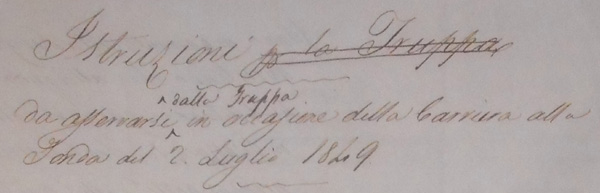 Istruzioni p la Truppa
dalla Truppa
da osservarsi in occasione della Carriera alla
Tonda del 2. Luglio 1849